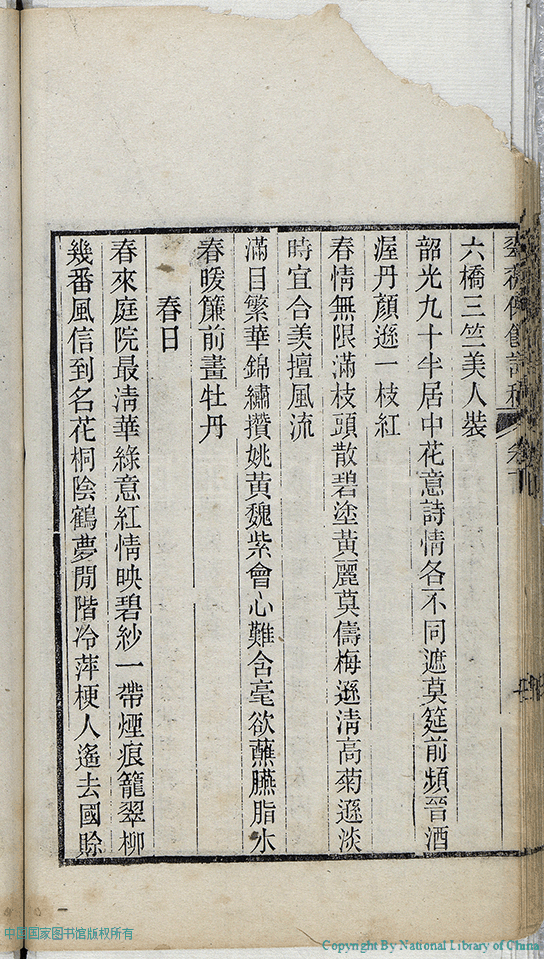 六橋三竺美人裝
韶光九十半居中花意詩情各不同遮莫筵前頻晉酒
渥丹顏遜一枝紅
春情無限滿枝頭散碧塗黃麗莫儔梅遜淸高菊遜淡
時宜合羙擅風流
滿目繁華錦繡攢姚黃魏紫會心難含毫欲蘸臙脂水
春暖簾前畫牡丹
春日
春來庭院最淸華綠意紅情映碧紗一帶煙痕籠翠柳
幾番風信到名花桐陰鶴夢閒階冷萍梗人遙去國賒
中国国家图书馆版权所有
Copyright By National Library of China